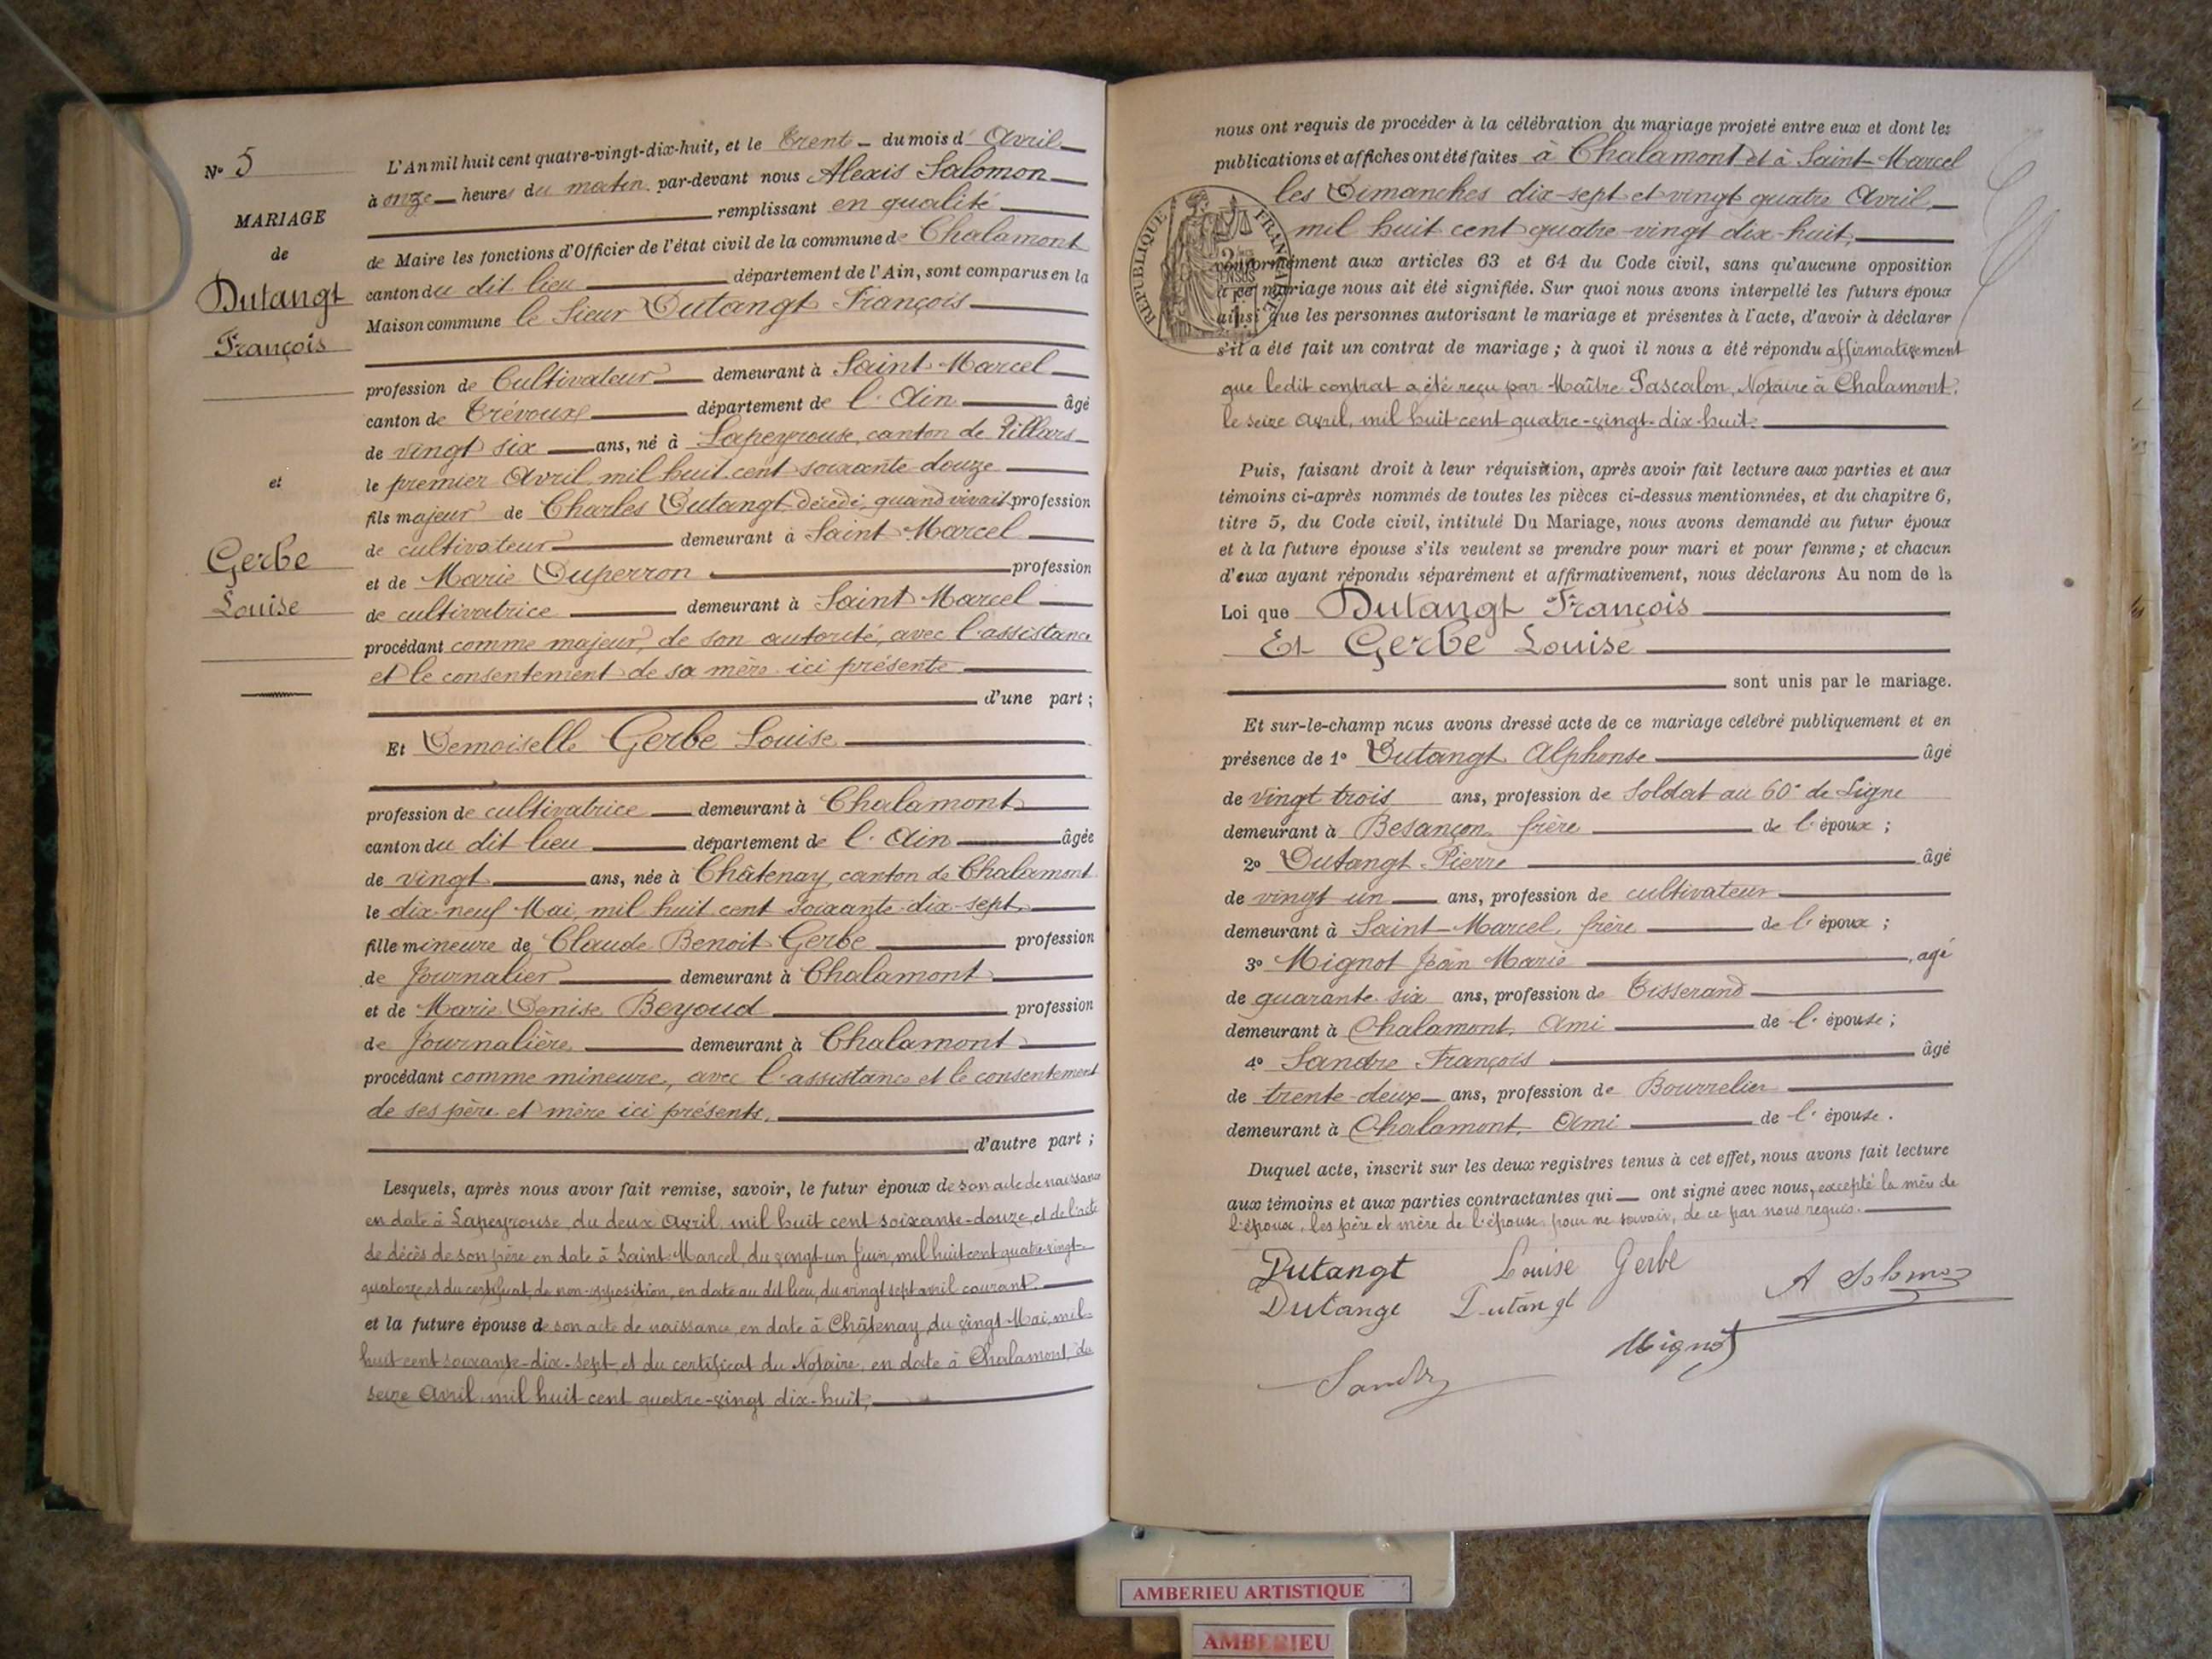 N° 5
MARIAGE
de
Dutangt
François
et
Gerbe
Louise
L'An mil huit cent quatre-vingt-dix-huit, et le Trente du mois d' Avril
à onze heures du matin par-devant nous Alexis Salomon
remplissant en qualité
de Maire les fonctions d'Officier de l'état civil de la commune de Chalamont
canton du dit lieu département de l'Ain, sont comparus en la
Maison commune le Sieur Dutangt François
profession de Cultivateur demeurant à Saint-Marcel
canton de Trévoux département de l'Ain âgé
de vingt six ans, né à Lapeyrouse, canton de Villars
le premier Avril mil huit cent soixante douze
fils majeur de Charles Dutangt décédé, quand vivait profession
de cultivateur demeurant à Saint-Marcel
et de Marie Duperron profession
de cultivatrice demeurant à Saint-Marcel
procédant comme majeur, de son autorité, avec l'assistance
et le consentement de sa mère ici présente
d'une part ;
Et Demoiselle Gerbe Louise
profession de cultivatrice demeurant à Chalamont
canton du dit lieu département de l'Ain âgée
de vingt ans, née à Châtenay, canton de Chalamont
le dix-neuf Mai, mil huit cent soixante-dix-sept
fille mineure de Claude Benoit Gerbe profession
de Journalier demeurant à Chalamont
et de Marie Denise Beyoud profession
de Journalière demeurant à Chalamont
procédant comme mineure, avec l'assistance et le consentement
de ses père et mère ici présents.
d'autre part ;
Lesquels, après nous avoir fait remise, savoir, le futur époux de son acte de naissance
en date à Lapeyrouse, du deux Avril mil huit cent soixante-douze, et de l'acte
de décès de son père en date à Saint-Marcel, du vingt-un Juin, mil huit cent quatre-vingt-
quatorze, et du certificat de non-opposition, en date au dit lieu, du vingt sept avril courant.
et la future épouse de son acte de naissance en date à Châtenay, du vingt Mai, mil-
huit-cent soixante-dix-sept, et du certificat du Notaire, en date à Chalamont, du
seize Avril, mil huit cent quatre-vingt dix-huit,
nous ont requis de procéder à la célébration du mariage projeté entre eux et dont les
publications et affiches ont été faites à Chalamont et à Saint-Marcel
les Dimanches dix-sept et vingt quatre Avril,
mil huit cent quatre-vingt dix-huit,
RÉPUBLIQUE FRANÇAISE
conformément aux articles 63 et 64 du Code civil, sans qu'aucune opposition
à ce mariage nous ait été signifiée. Sur quoi nous avons interpellé les futurs époux
ainsi que les personnes autorisant le mariage et présentes à l'acte, d'avoir à déclarer
s'il a été fait un contrat de mariage ; à quoi il nous a été répondu affirmativement
que ledit contrat a été reçu par Maître Pascalon, Notaire à Chalamont,
le seize Avril, mil huit cent quatre-vingt-dix-huit.
Puis, faisant droit à leur réquisition, après avoir fait lecture aux parties et aux
témoins ci-après nommés de toutes les pièces ci-dessus mentionnées, et du chapitre 6,
titre 5, du Code civil, intitulé Du Mariage, nous avons demandé au futur époux
et à la future épouse s'ils veulent se prendre pour mari et pour femme ; et chacun
d'eux ayant répondu séparément et affirmativement, nous déclarons Au nom de la
Loi que Dutangt François
Et Gerbe Louise
sont unis par le mariage.
Et sur-le-champ nous avons dressé acte de ce mariage célébré publiquement et en
présence de 1° Dutangt Alphonse âgé
de vingt trois ans, profession de Soldat au 60e de Ligne
demeurant à Besançon, frère de l'époux ;
2° Dutangt Pierre âgé
de vingt un ans, profession de cultivateur
demeurant à Saint-Marcel, frère de l'époux ;
3° Mignot Jean Marie, agé
de quarante-six ans, profession de Tisserand
demeurant à Chalamont, Ami de l'épouse ;
4° Sandre François âgé
de trente-deux ans, profession de Bourrelier
demeurant à Chalamont, Ami de l'épouse.
Duquel acte, inscrit sur les deux registres tenus à cet effet, nous avons fait lecture
aux témoins et aux parties contractantes qui ont signé avec nous, excepté la mère de
l'époux, les père et mère de l'épouse pour ne savoir, de ce par nous requis.
Dutangt Louise Gerbe
A Salomon
Dutangt Dutangt
Mignot
Sandre
AMBERIEU ARTISTIQUE
AMBERIEU